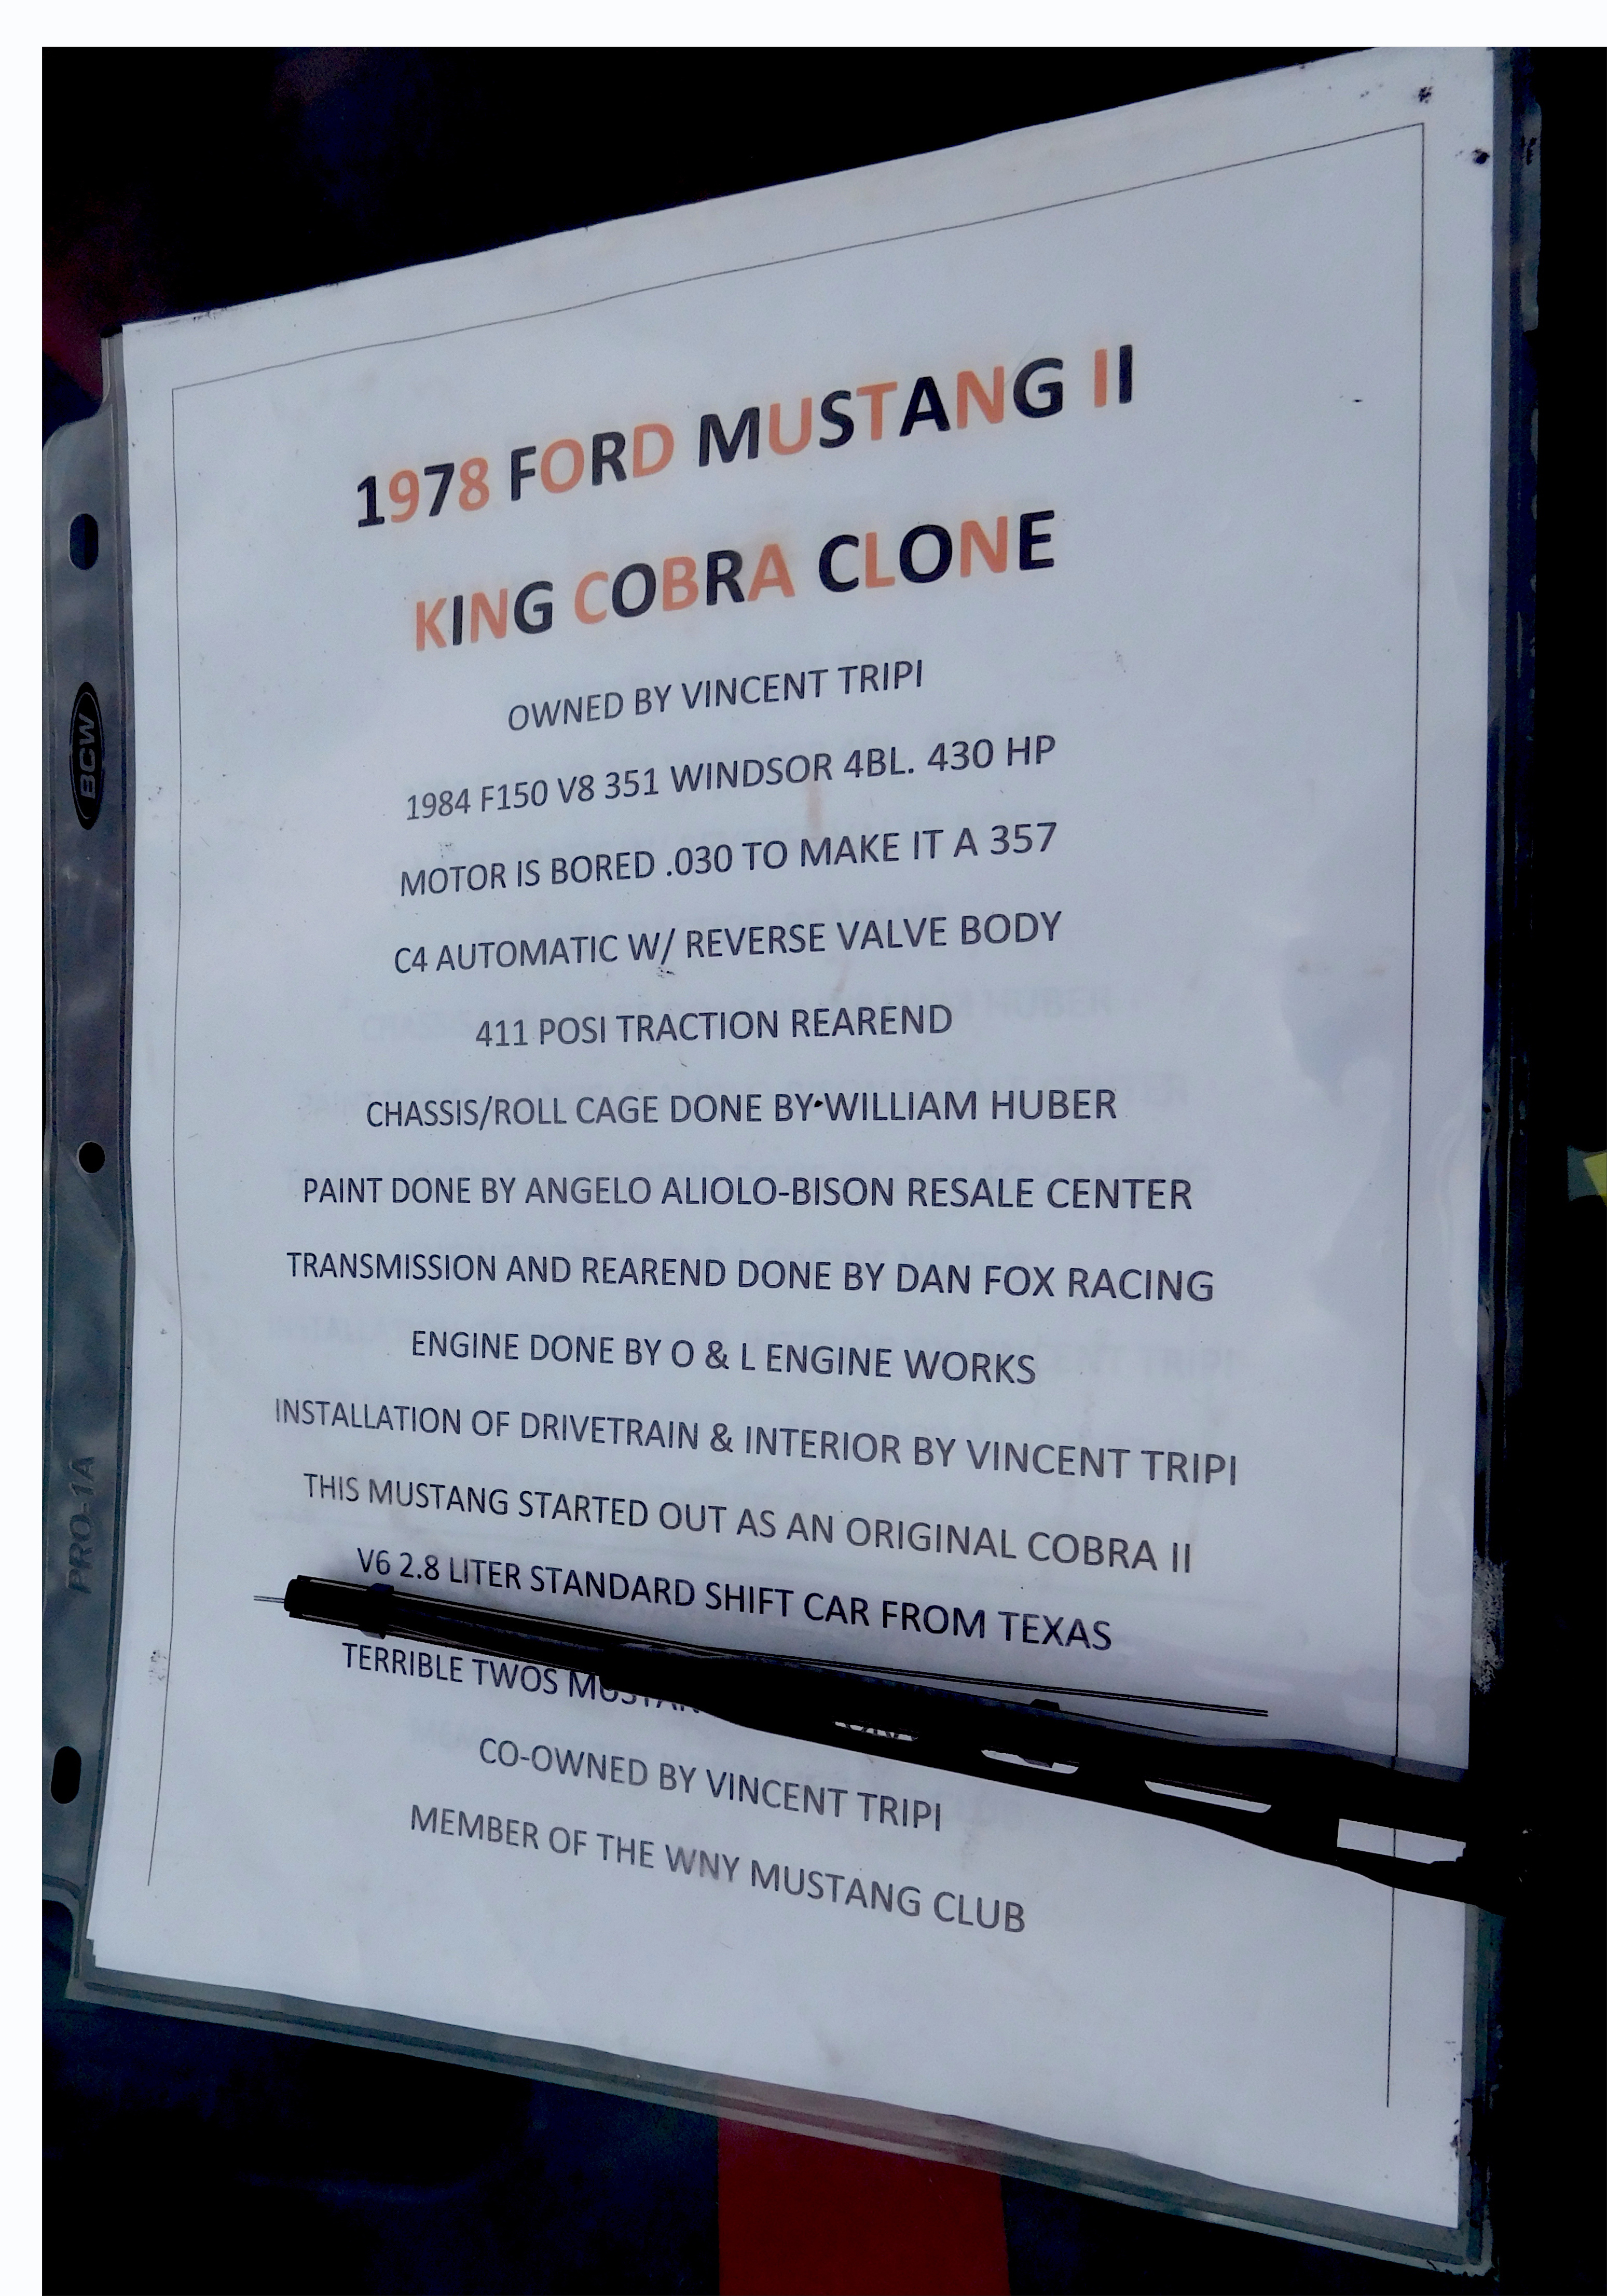 1978 FORD MUSTANG II
KING COBRA CLONE
OWNED BY VINCENT TRIPI
1984 F150 V8 351 WINDSOR 4BL. 430 HP
MOTOR IS BORED .030 TO MAKE IT A 357
C4 AUTOMATIC W/ REVERSE VALVE BODY
411 POSI TRACTION REAREND
CHASSIS/ROLL CAGE DONE BY WILLIAM HUBER
PAINT DONE BY ANGELO ALIOLO-BISON RESALE CENTER
TRANSMISSION AND REAREND DONE BY DAN FOX RACING
ENGINE DONE BY O & L ENGINE WORKS
INSTALLATION OF DRIVETRAIN & INTERIOR BY VINCENT TRIPI
THIS MUSTANG STARTED OUT AS AN ORIGINAL COBRA II
V6 2.8 LITER STANDARD SHIFT CAR FROM TEXAS
TERRIBLE TWOS
CO-OWNED BY VINCENT TRIPI
MEMBER OF THE WNY MUSTANG CLUB
BCW
PRO-1A